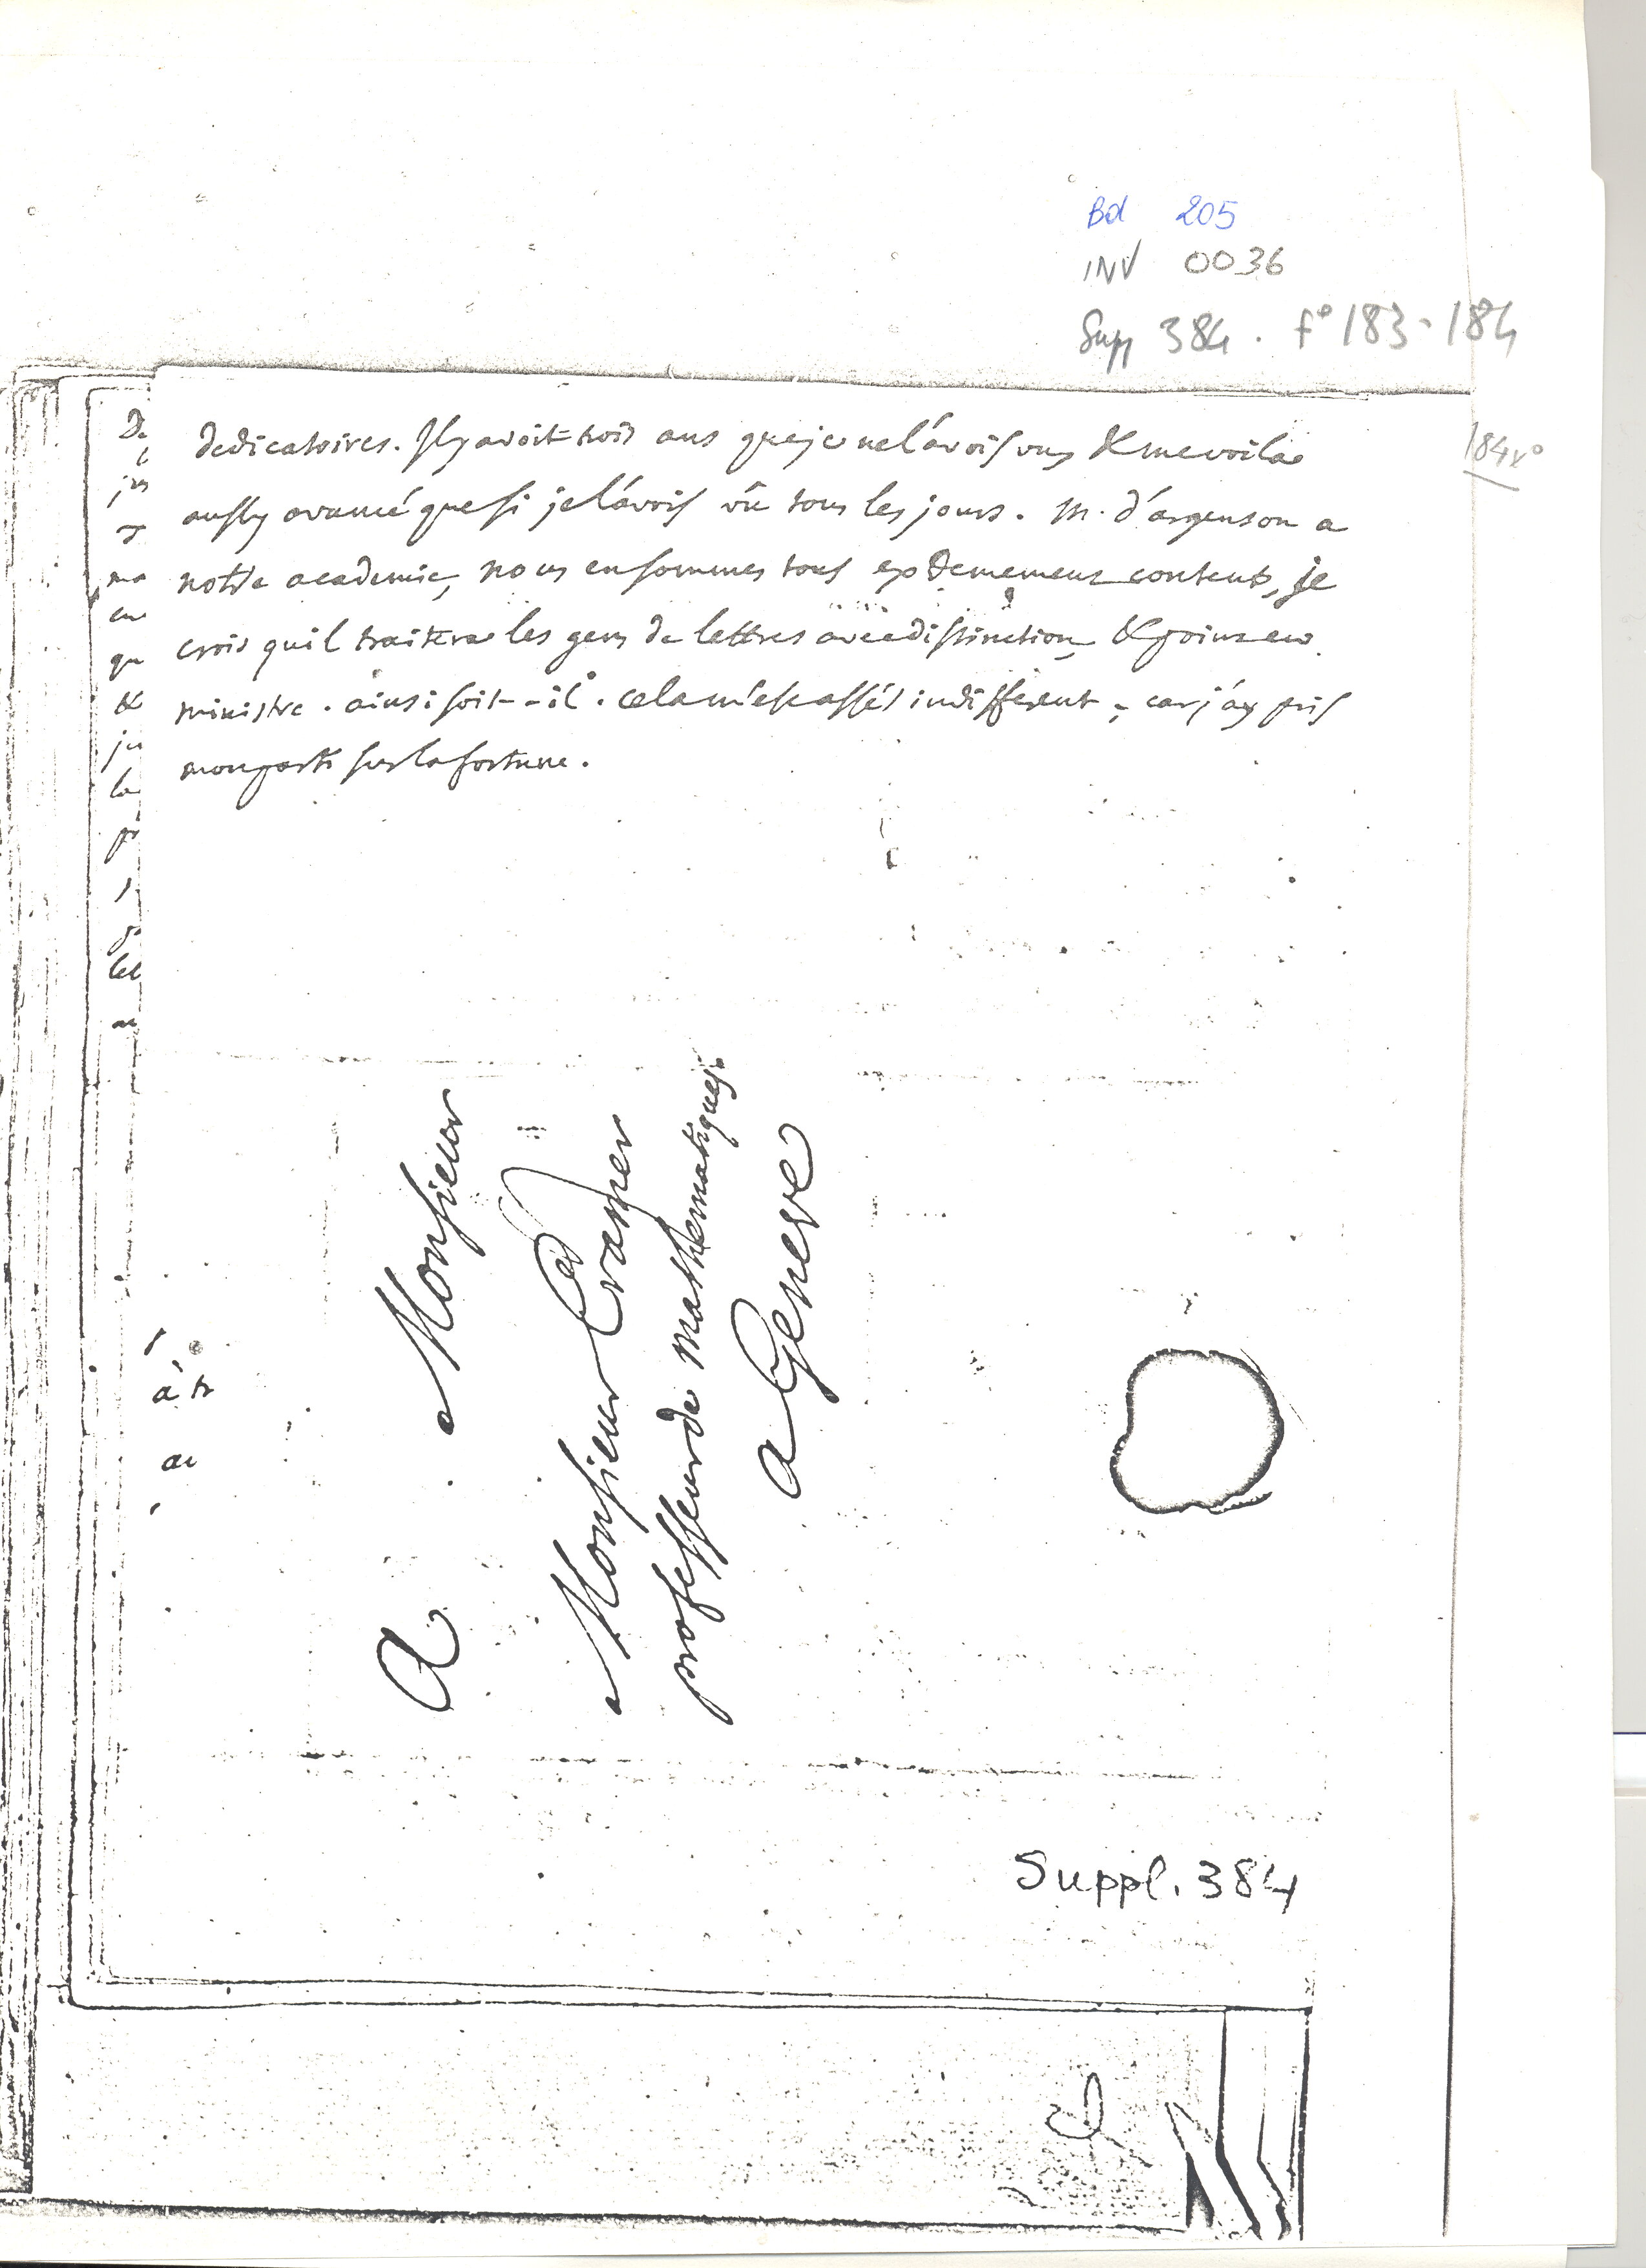 Bd 205
INV 0036
Supp 384. f° 183-184
184v°
dedicatoires. Il y avoit trois ans que je ne l'avois vu, & me voila
aussy avancé que si je l'avois vû tous les jours. M. d'argenson a
notre academie, nous en sommes tous extremement contents, je
crois qu'il traitera les gens de lettres avec distinction, & point en
ministre. ainsi soit-il. cela m'est assés indifferent, car j'ay pris
mon parti sur la fortune.
De
jus
ma
en
qu
&
je
la
pr
lel
au
á tr
au
A Monsieur
Monsieur Cramer
professeur de mathematiques
a Geneve
Suppl. 384